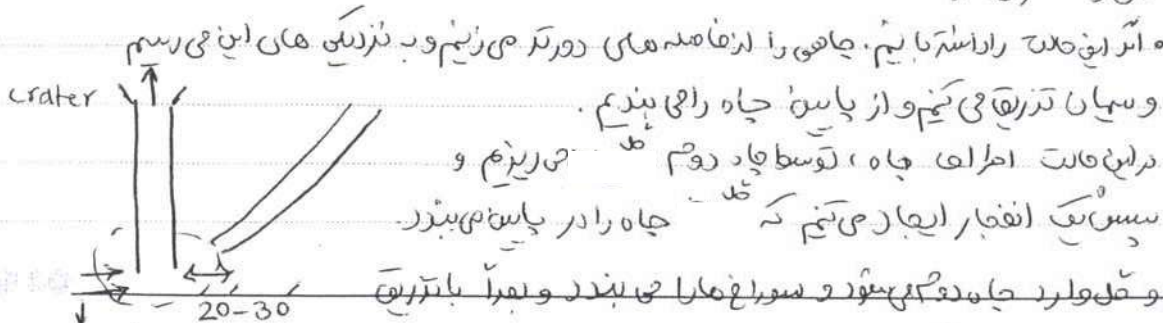 ه اگر این حالت را داشته باشیم. چاهی را از فاصله های دورتر می زنیم و به نزدیکی های این می رسیم
crater
و سیمان تزریق می کنیم و از پایین چاه را می بندیم.
در این حالت اطراف چاه، توسط چاه دوم گل می ریزیم و
سپس یک انفجار ایجاد می کنیم که گل چاه را در پایین می بندد.
و گل وارد چاه دوم می شود و سوراخ ها را می بندد و بعداً با تزریق
20-30